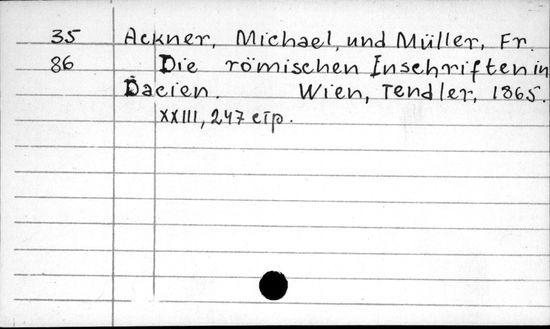 35 Ackner, Michael, und Müller, Fr.
86 Die römischen Inschriften in
Dacien. Wien, Tendler, 1865.
XXIII, 247 стр.